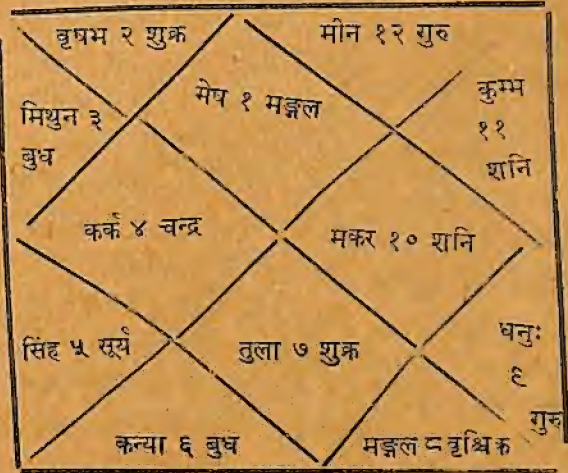 वृषभ २ शुक्र
मीन १२ गुरु
मेष १ मङ्गल
कुम्भ
११
शनि
मिथुन ३
बुध
कर्क ४ चन्द्र
मकर १० शनि
सिंह ५ सूर्य
तुला ७ शुक्र
धनुः
९
गुरु
कन्या ६ बुध
मङ्गल ८ वृश्चिक